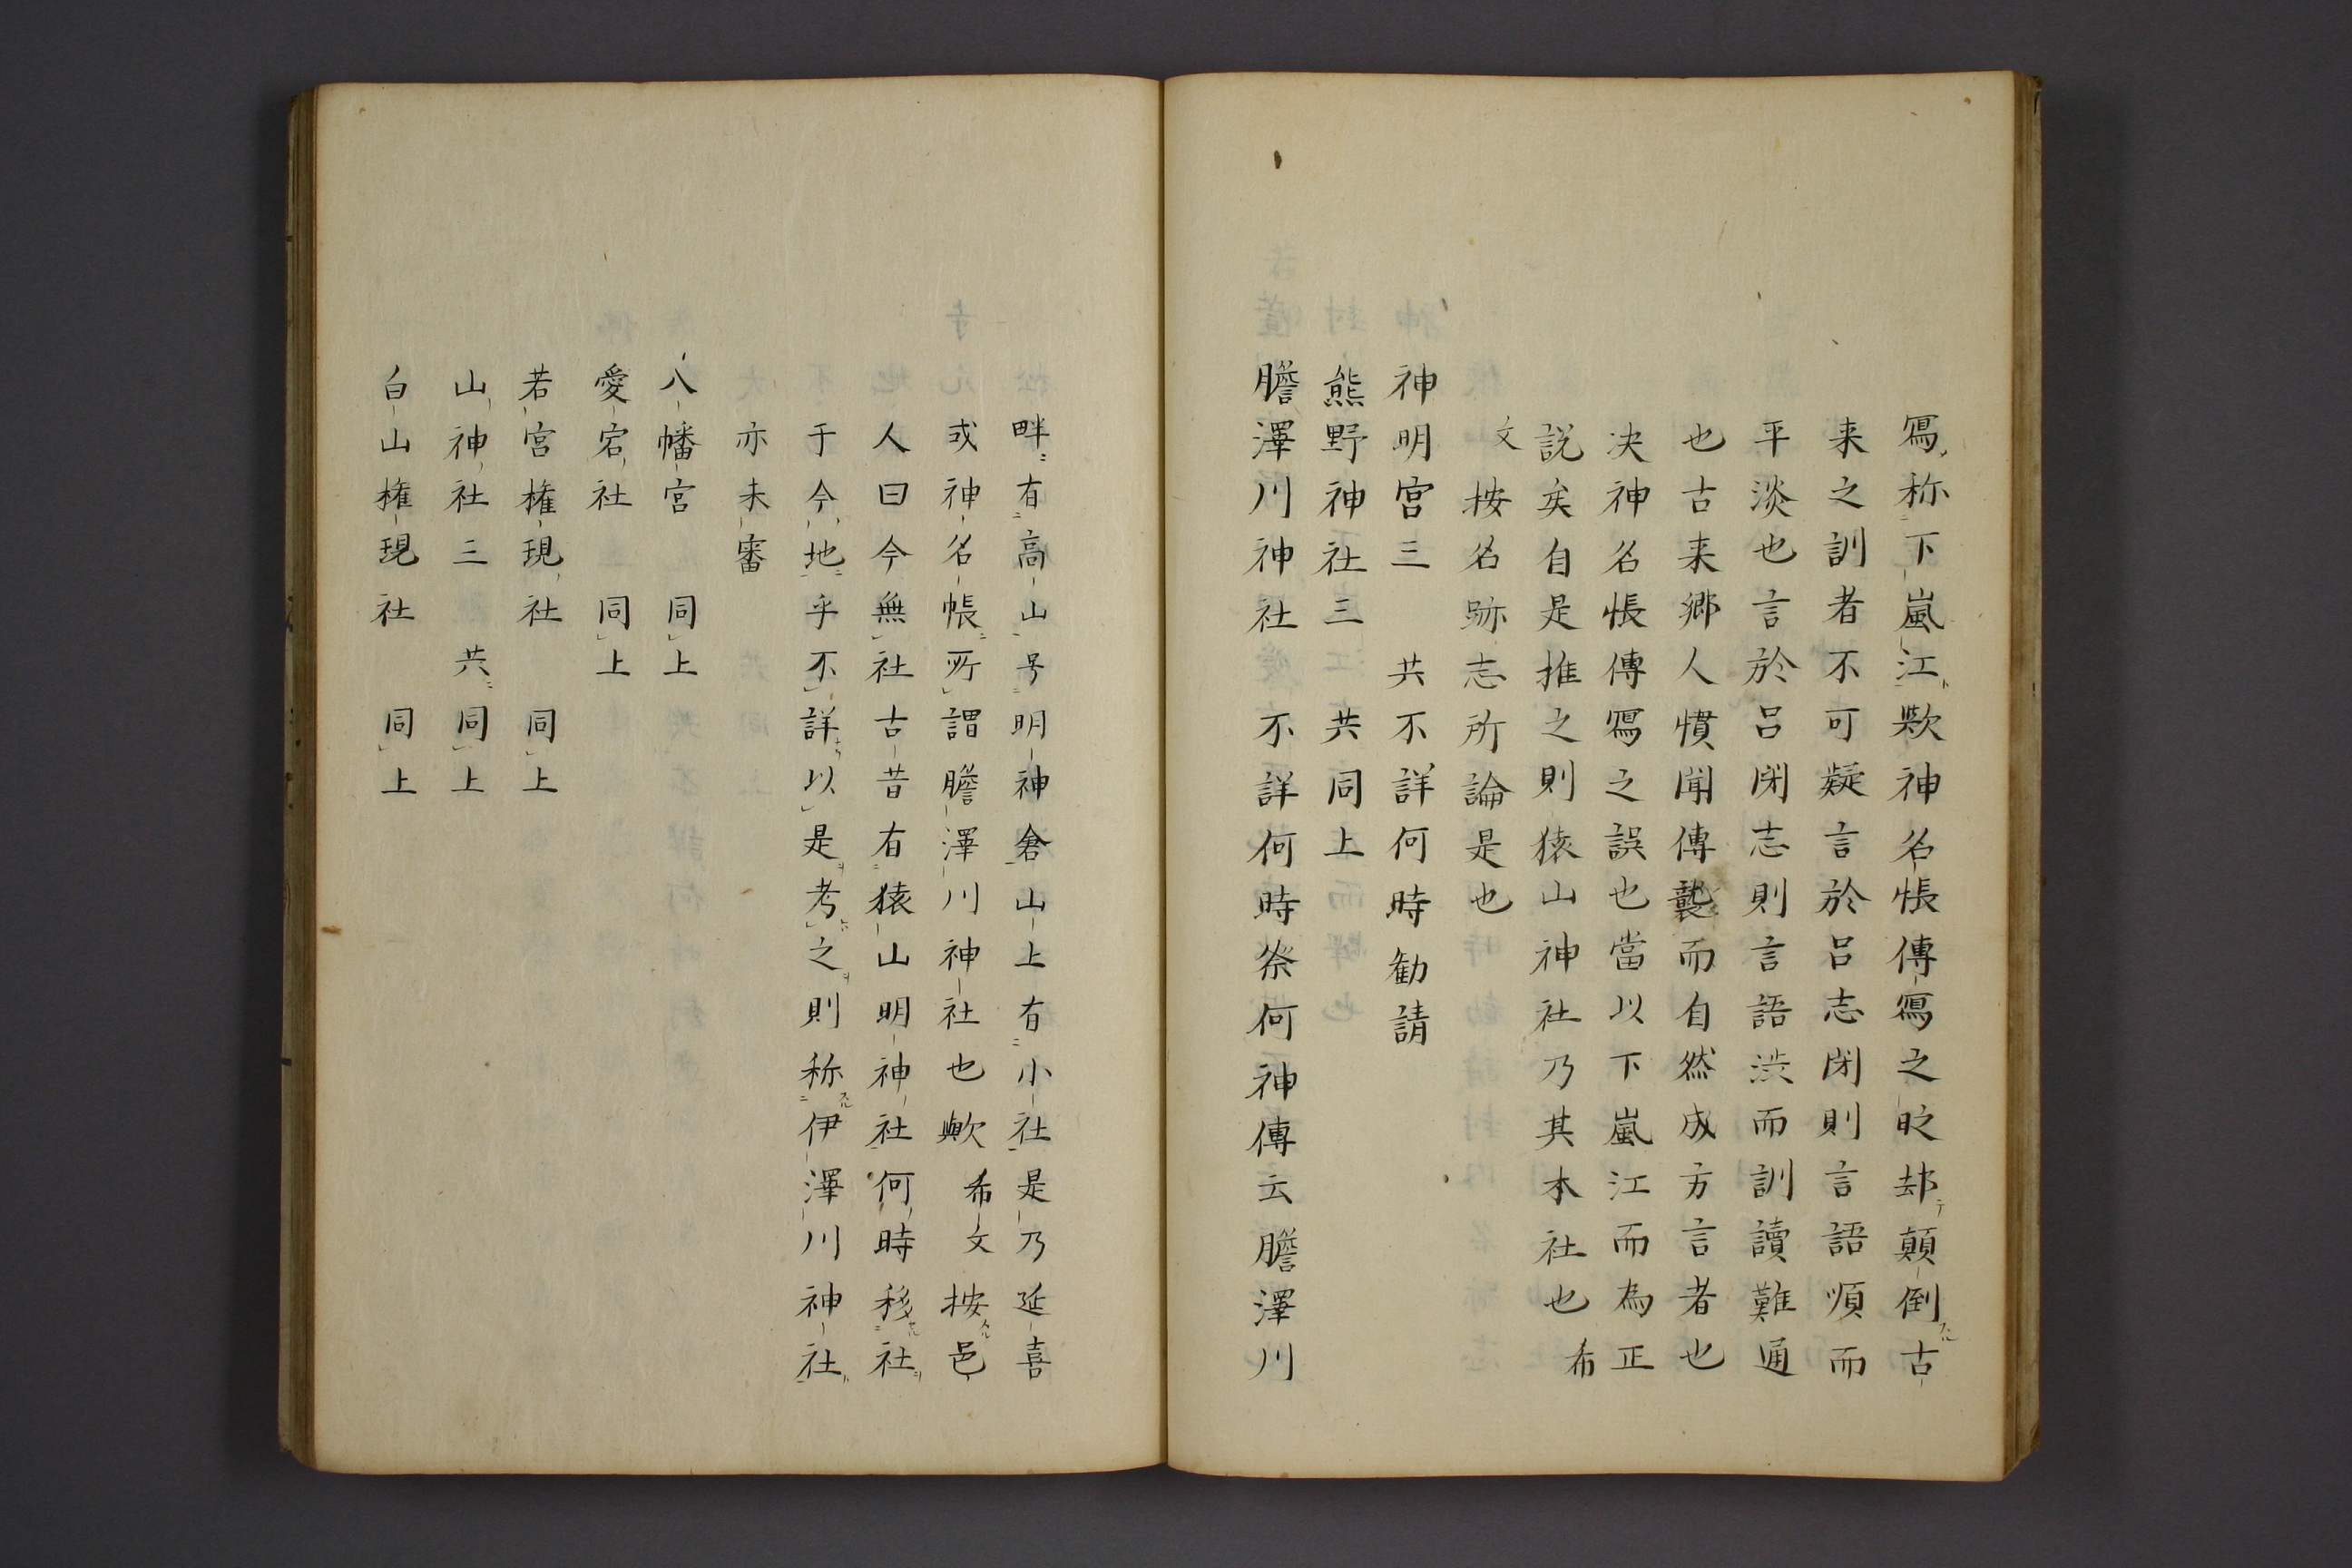 寫称下嵐江歟神名帳傳寫之時却顛倒古
来之訓者不可疑言於呂志閉則言語順而
平淡也言於呂閉志則言語渋而訓讀難通
也古来郷人慣聞傳襲而自然成方言者也
决神名帳傳寫之誤也當以下嵐江而為正
説矣自是推之則猿山神社乃其本社也希
文按名跡志所論是也
神明宮三　共不詳何時勧請
熊野神社三　共同上
膽澤川神社　不詳何時祭何神傳云膽澤川
畔有高山号明神倉山上有小社是乃延喜
或神名帳所謂膽澤川神社也歟　希文按邑
人曰今無社古昔有猿山明神社何時移社
于今地乎不詳以是考之則称伊澤川神社
亦未審
八幡宮　同上
愛宕社　同上
若宮権現社　同上
山神社三　共同上
白山権現社　同上